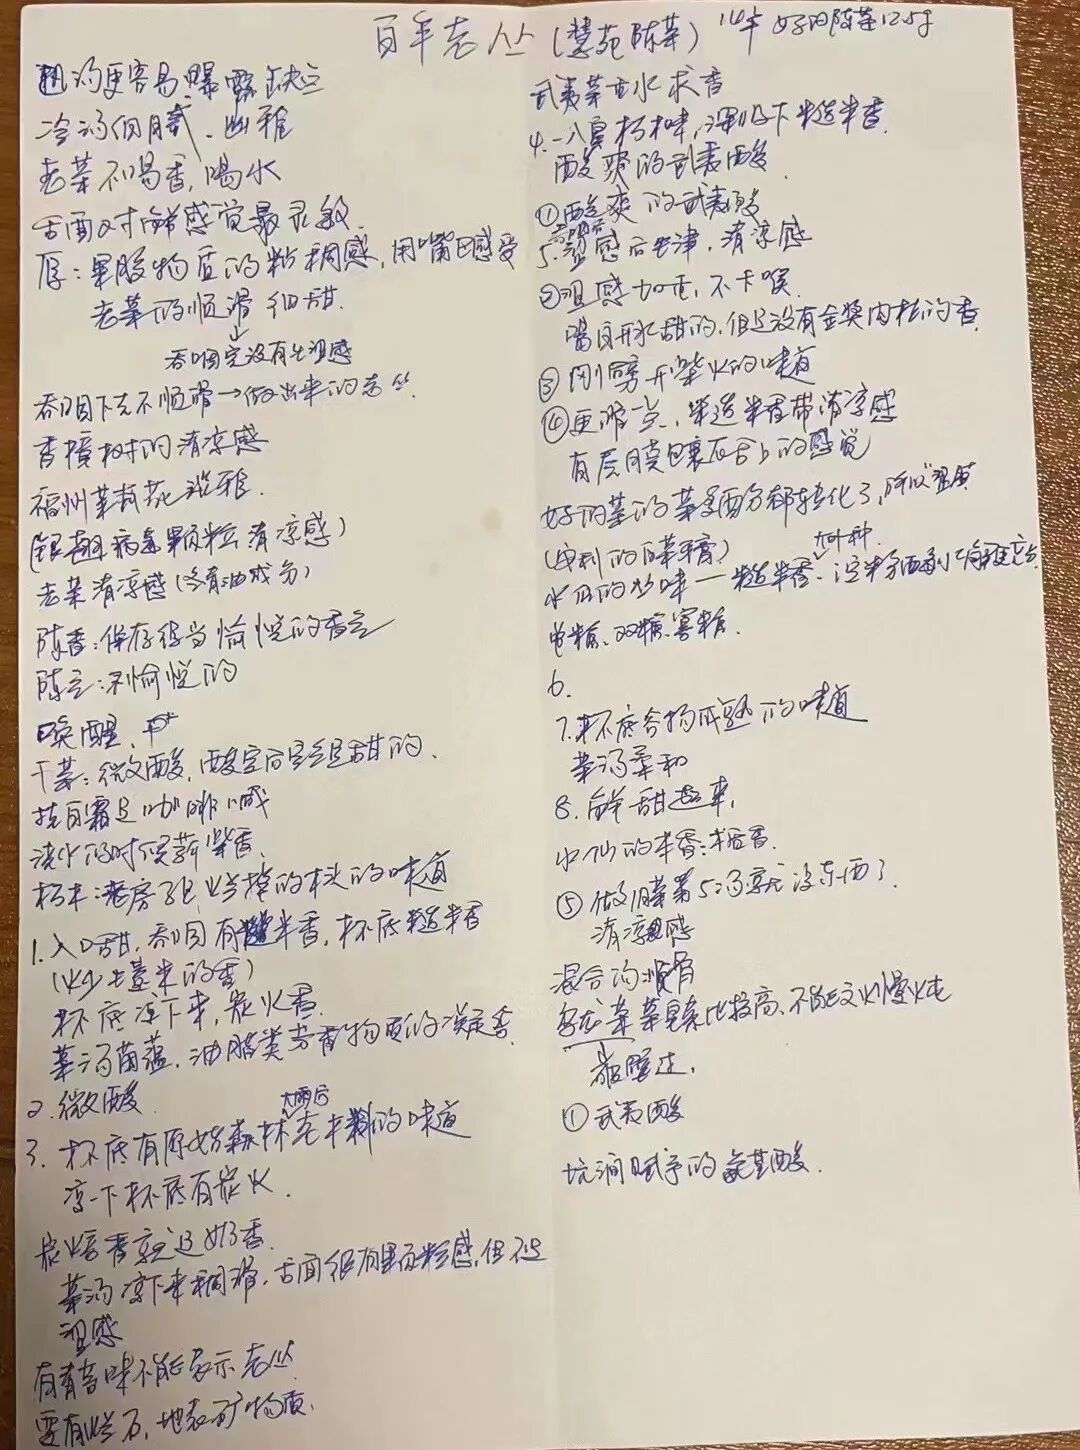 百年老丛(慧苑陈茶)
粗汤更容易曝露缺点
冷汤细腻、幽雅
老茶不喝香,喝水
舌面对鲜感觉最灵敏
厚:果胶物质的粘稠感,用嘴巴感受
老茶的顺滑 细甜.
吞咽完没有生涩感
吞咽下去不顺滑→做出来的老丛
香樟树的清凉感
福州茉莉花淡雅.
(银翘病毒颗粒清凉感)
老茶清凉感(含有油成分)
陈香:保存得当愉悦的香气
陈气:不愉悦的
唤醒.
干茶:微酸,酸空间后是甜的.
挂白霜是咖啡碱
浇水的时候薪柴香.
朽木:老房子已烂掉的木头的味道
1.入口甜,吞咽有糙米香,杯底糙米香
(火少去薏米的香)
杯底凉下来,炭火香.
茶汤菌蕴,油脂类芳香物质的沉淀香.
2.微酸.
大雨后
3.杯底有原始森林老木料的味道
凉一下杯底有炭火.
炭焙香就这好香.
茶汤凉下来稠滑,舌面很有果颗粒感,但不是
涩感
有青苔味不能表示老丛
要有烂石,地表矿物质.
武夷茶重水求香
4.一入口朽木味,深咽下糙米香.
酸爽的武夷酸.
①酸爽的武夷酸
5.涩感后生津,清凉感
②涩感加重,不卡喉.
喝白开水甜的,但是没有金奖肉桂的香.
③刚劈开柴火的味道
④更滑一点、糙米香带清凉感
有层膜包裹在舌上的感觉
好的茶的茶多酚都转化了,所以涩度
(安利的牙膏)
水仙的丛味—糙米香、
单糖、双糖、寡糖.
6.
7.杯底谷物成熟的味道
茶汤柔和
8.鲜甜起来,
水仙的本香:粽香.
⑤做旧茶第5汤就没东西了.
清凉感
混合的顺滑
乌龙茶茶氨比较高、不能文火慢火炖
最暖过.
①武夷酸
坑涧赋予的氨基酸.